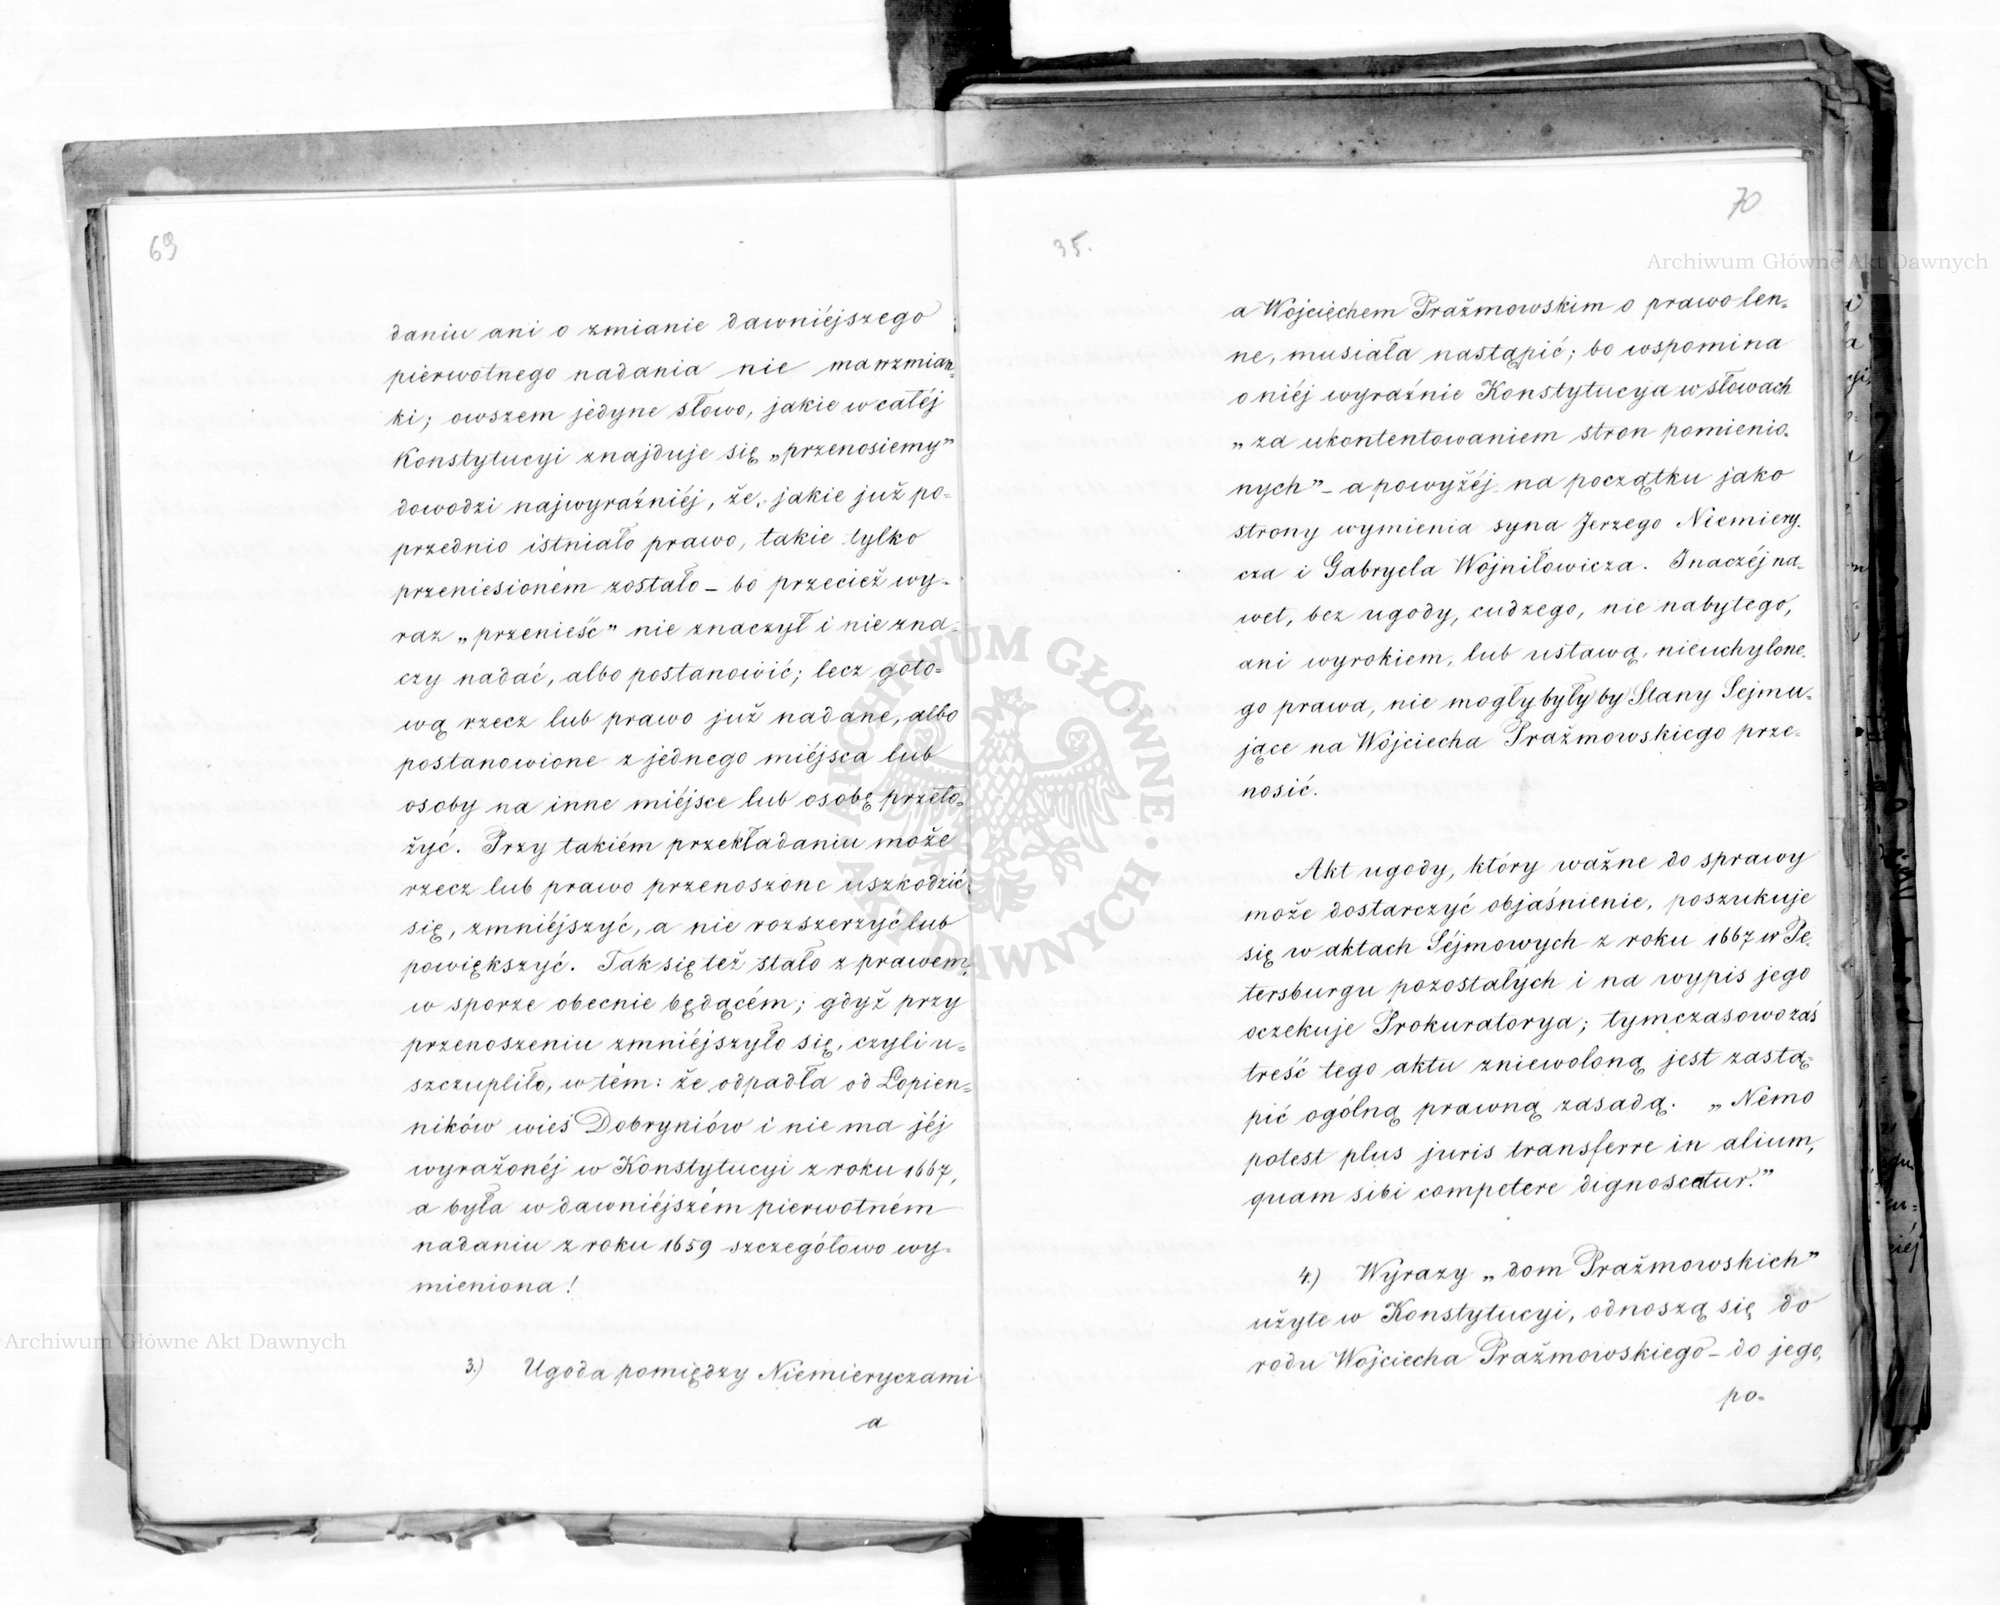 69
daniu ani o zmianie dawniéjszego
pierwotnego nadania nie ma wzmian-
ki; owszem jedyne słowo, jakie w całéj
Konstytucyi znajduje się „przenosiemy”
dowodzi najwyraźniéj, że, jakie już po-
przednio istniało prawo, takie tylko
przeniesioném zostało – bo przecież wy-
raz „przenieść” nie znaczył i nie zna-
czy nadać, albo postanowić; lecz goto-
wą rzecz lub prawo już nadane, albo
postanowione z jednego miéjsca lub
osoby na inne miéjsce lub osobę przeło-
żyć. Przy takiém przekładaniu może
rzecz lub prawo przenoszone uszkodzić
się, zmniéjszyć, a nie rozszerzyć lub
powiększyć. Tak się też stało z prawem,
w sporze obecnie będącém; gdyż przy
przenoszeniu zmniéjszyło się, czyli u-
szczupliło, w tém: że odpadła od Łopien-
ników wieś Dobryniów i nie ma jéj
wyrażonéj w Konstytucyi z roku 1667,
a była w dawniéjszém pierwotném
nadaniu z roku 1659 szczegółowo wy-
mieniona!
3.) Ugoda pomiędzy Niemieryczami
a
35.
70
a Wojciechem Prażmowskim o prawo len-
ne, musiała nastąpić; bo wspomina
o niéj wyraźnie Konstytucya w słowach
„za ukontentowaniem stron pomienio-
nych” – a powyżéj na początku jako
strony wymienia syna Jerzego Niemiery-
cza i Gabryela Wojniłowicza. Inaczéj na-
wet, bez ugody, cudzego, nie nabytego,
ani wyrokiem, lub ustawą, nieuchylone-
go prawa, nie mogły byłyby Stany Sejmu-
jące na Wojciecha Prażmowskiego prze-
nosić.
Akt ugody, który ważne do sprawy
może dostarczyć objaśnienie, poszukuje
się w aktach Séjmowych z roku 1667 w Pe-
tersburgu pozostałych i na wypis jego
oczekuje Prokuratorya; tymczasowo zaś
treść tego aktu zniewoloną jest zastą-
pić ogólną prawną zasadą. „Nemo
potest plus juris transferre in alium,
quam sibi competere dignoscatur.”
4.) Wyrazy „dom Prażmowskich”
użyte w Konstytucyi, odnoszą się do
rodu Wojciecha Prażmowskiego – do jego,
po-
Archiwum Główne Akt Dawnych
Archiwum Główne Akt Dawnych
ARCHIWUM GŁÓWNE · AKT DAWNYCH ·